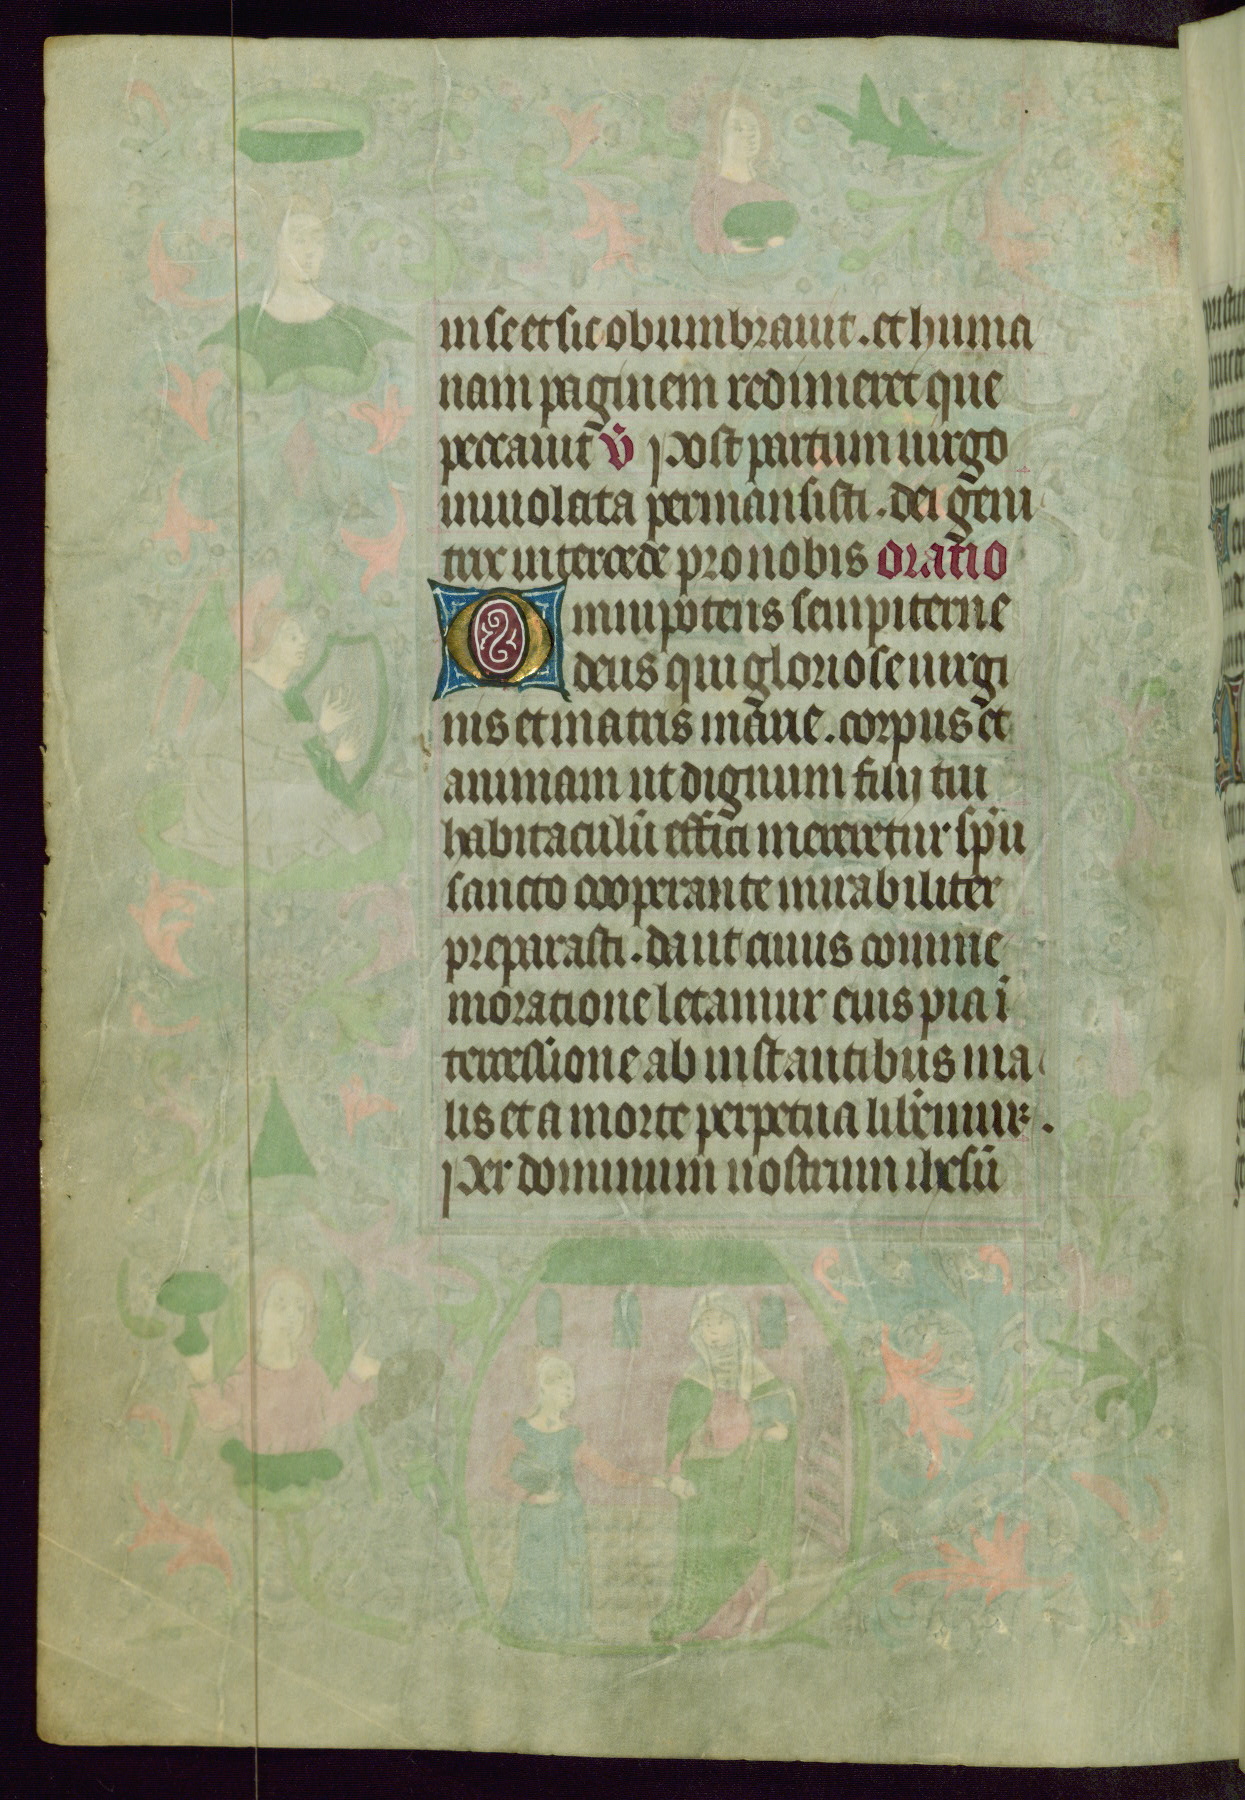 in se et sic obumbrauit . et huma
nam paginem redimeret que
peccauit v̄ Post partum uirgo
inuiolata permansisti . dei geni
trix intercede pro nobis oratio
Omnipotens sempiterne
deus qui gloriose uirgi
nis et matris marie . corpus et
animam ut dignum filij tui
habitaculū effici mereretur spū
sancto cooperante mirabiliter
preparasti . da ut cuius comme
moratione letamur eius pia ī
tercessione ab instantibus ma
lis et a morte perpetua liberemur .
Per dominum nostrum ihesū